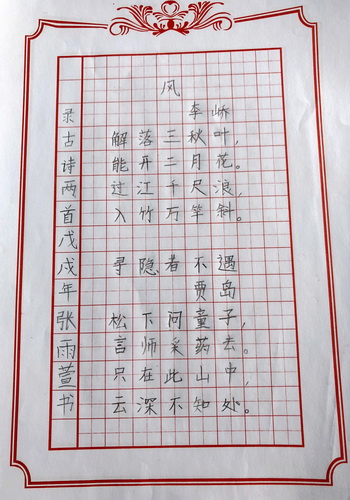 风
李峤
解落三秋叶，
能开二月花。
过江千尺浪，
入竹万竿斜。
寻隐者不遇
贾岛
松下问童子，
言师采药去。
只在此山中，
云深不知处。
录古诗两首戊戌年张雨萱书